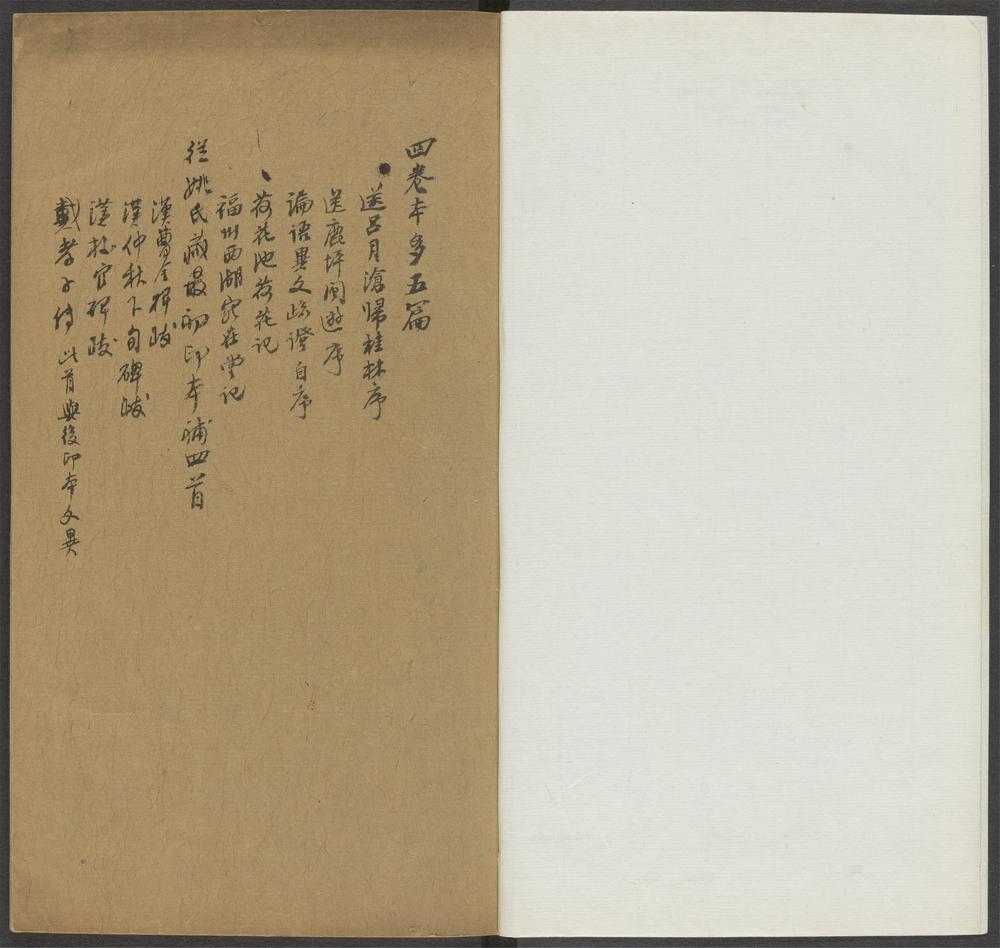 四卷本多五篇
送呂月滄歸桂林序
送鹿坪閩遊序
論語異文疏證自序
荷花池荷花記
福州西湖宛在堂記
從姚氏藏最初印本補四首
漢曹全碑跋
漢仲秋下旬碑跋
漢校官碑跋
戴孝子傳 此首與後印本文異